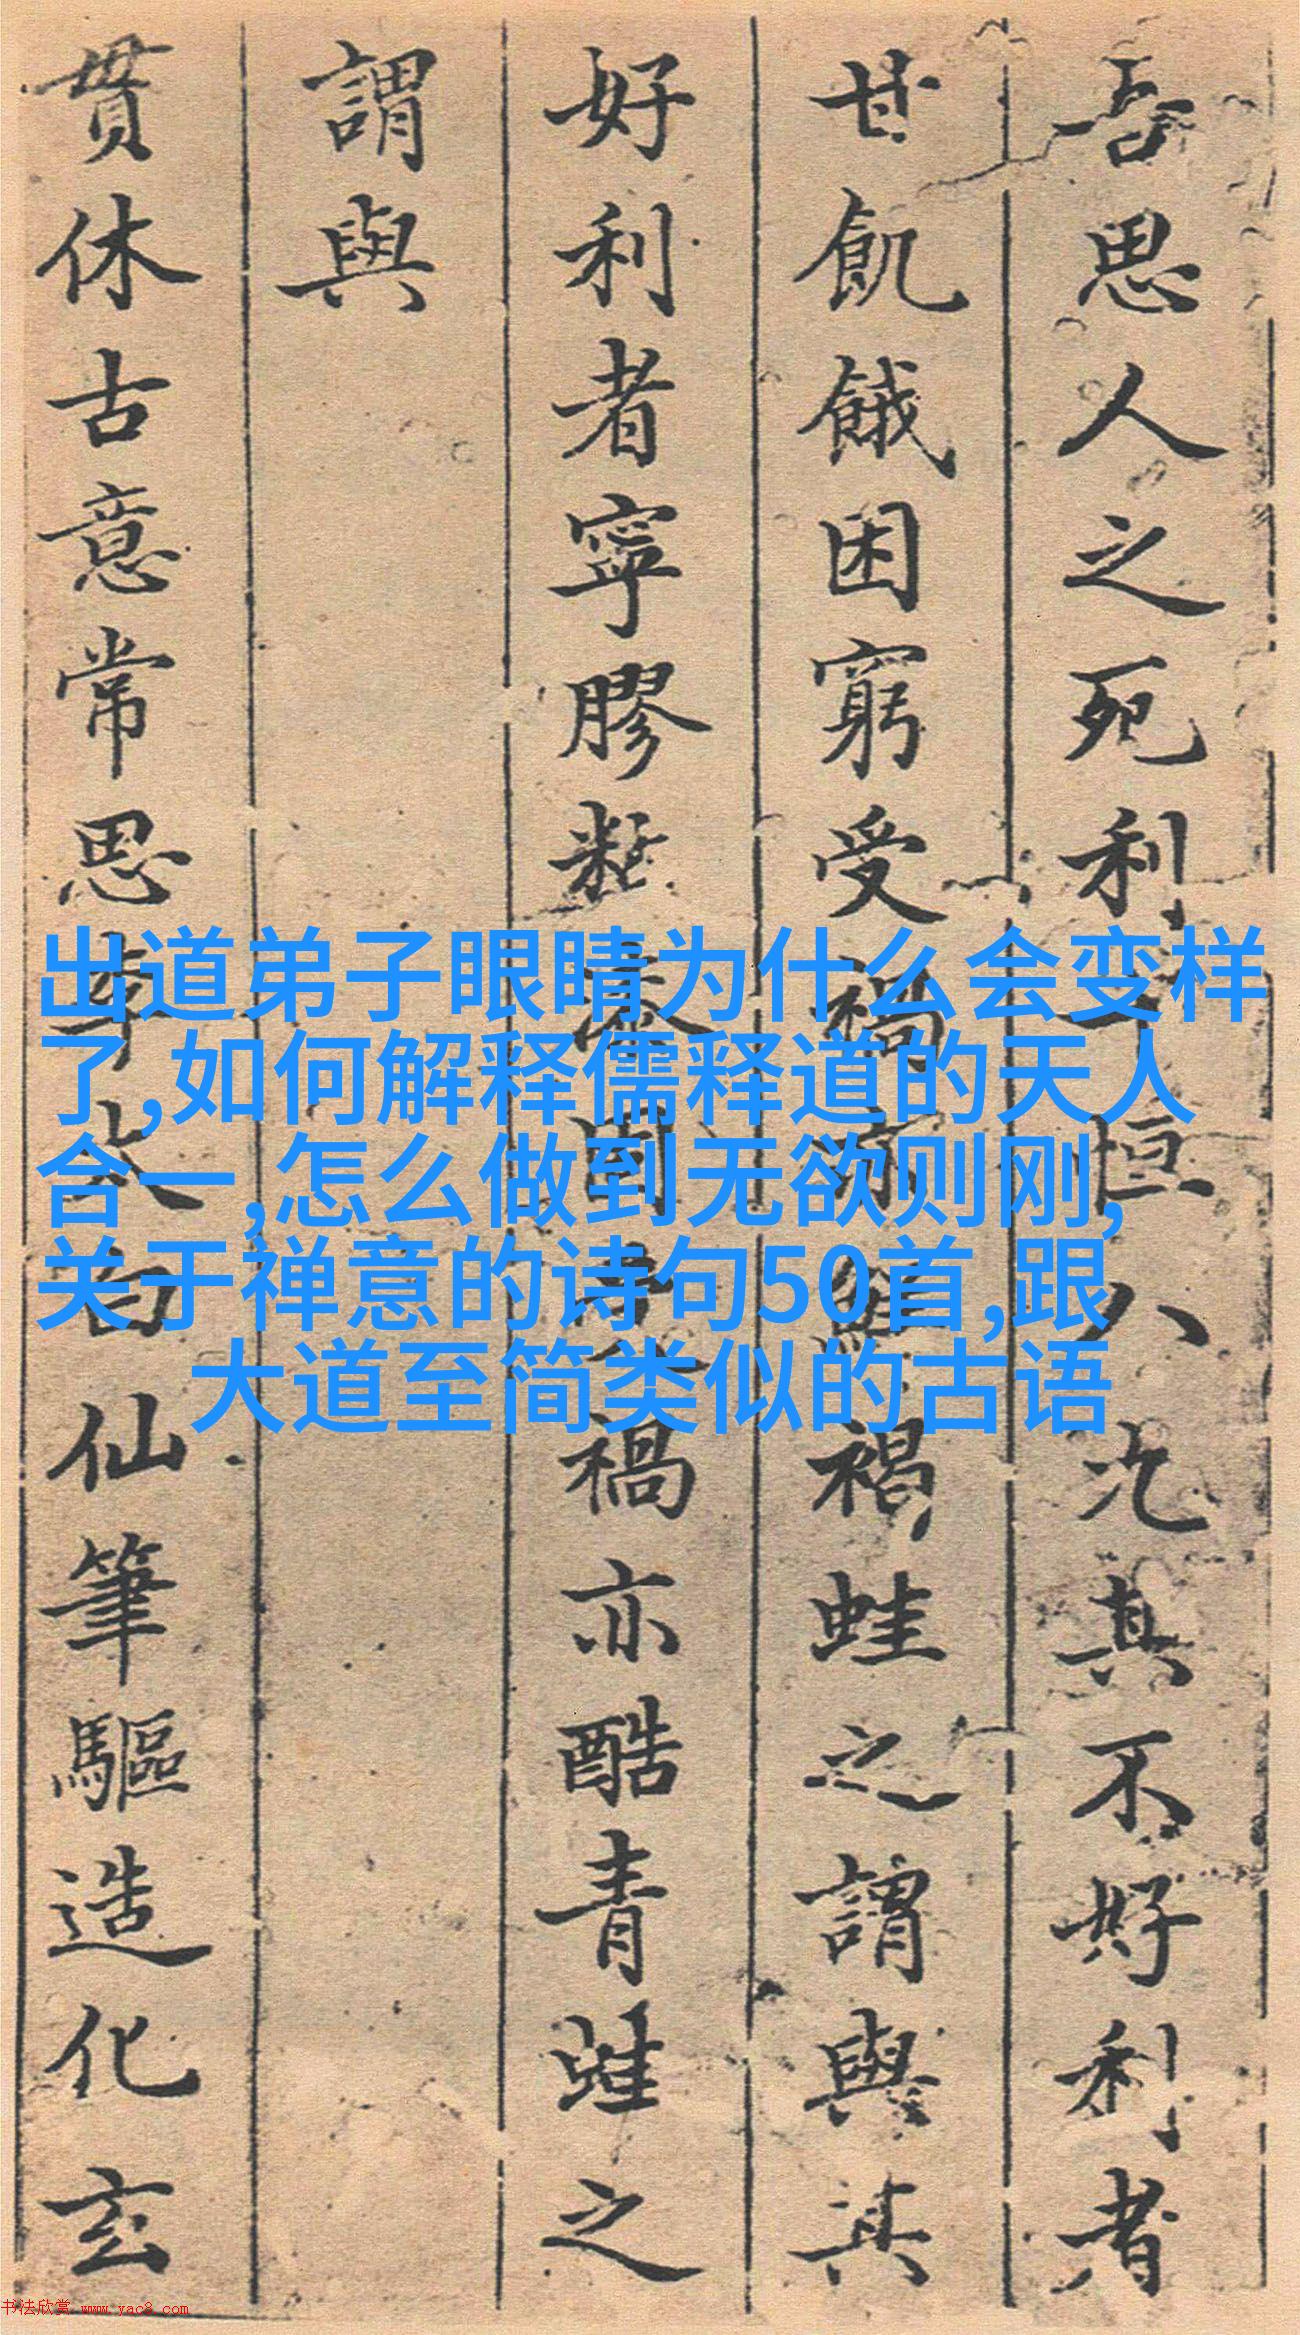 吾思人之死利恒其不好利者
甘飢餓困窮受禍褐蛙之謂與其
好利者寧膠禍亦酷青蛙之
謂與
貫休古意常思李太白仙筆驅造化玄
出道弟子眼睛为什么会变样
了,如何解释儒释道的天人
合一,怎么做到无欲则刚,
关于禅意的诗句50首,跟
大道至简类似的古语
书法欣赏 www.yac8.com